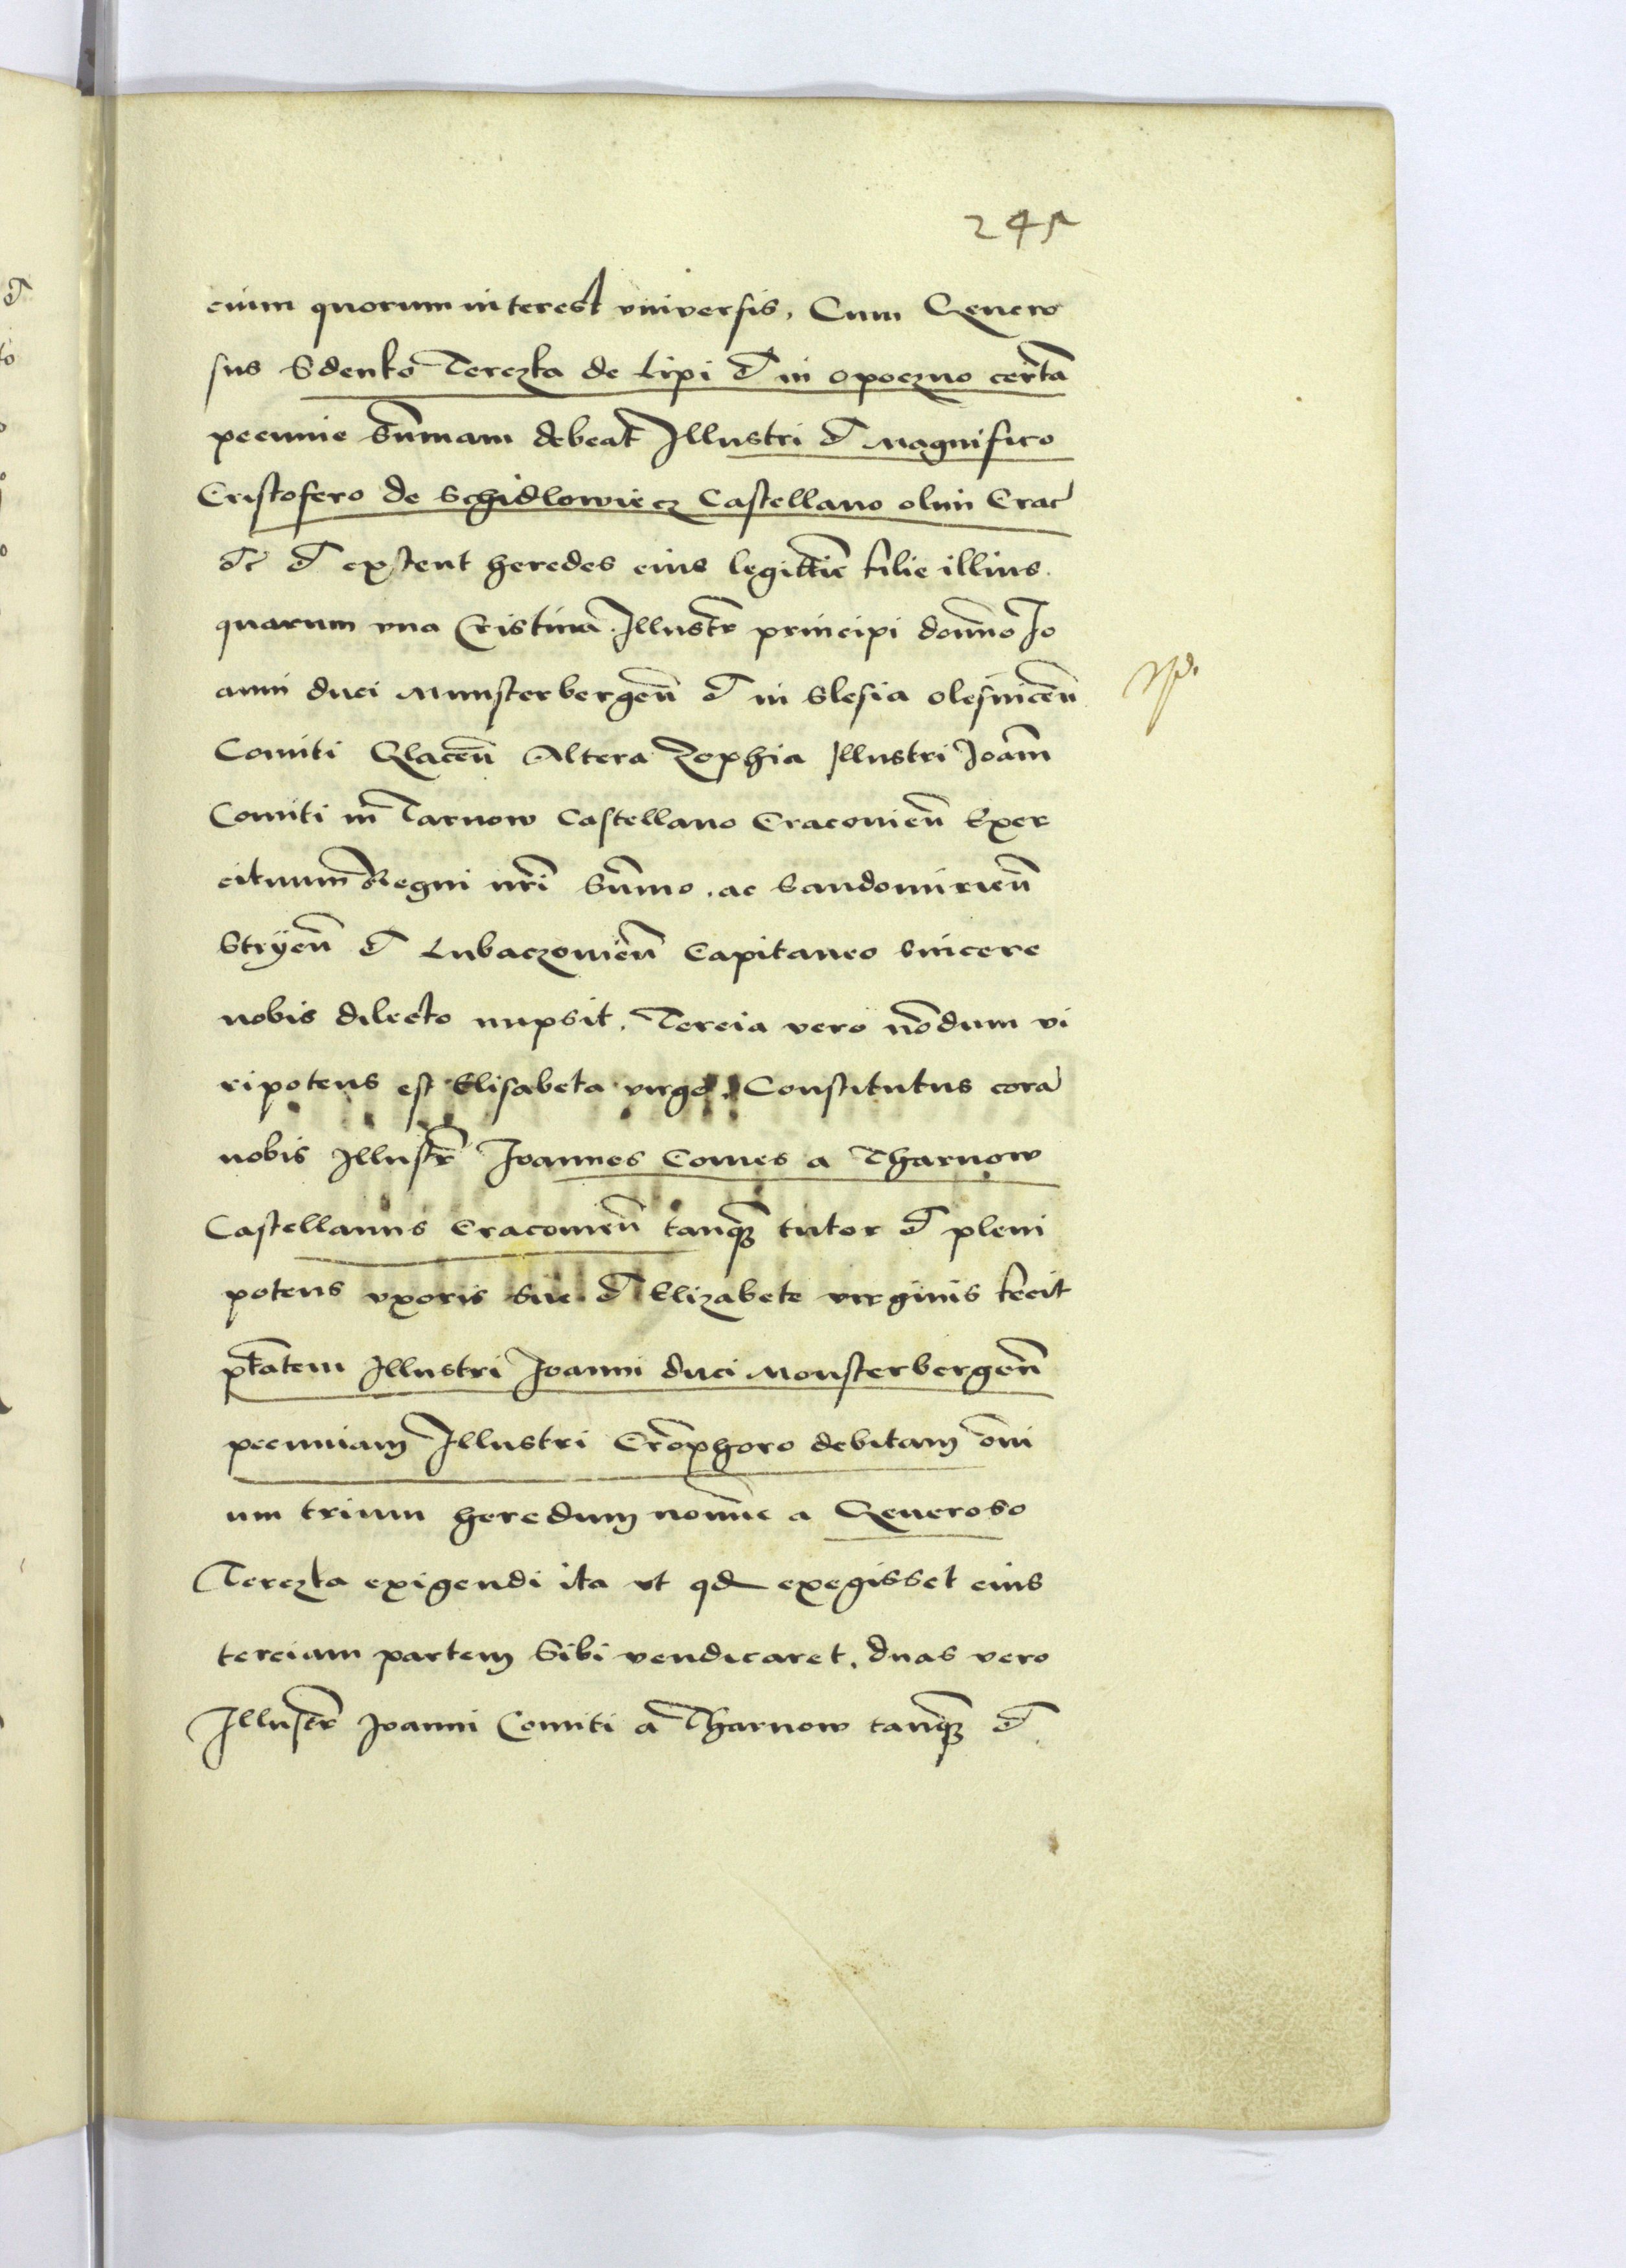 245
cium quorum interest vniversis, Cum Genero
sus Sdenko Terczka de Lipi et in opoczno certā
pecunie Sūmam debeat Illustri et Magnifico
Cristofero de Schidlowiecz Castellano olim Crac
etc et extent heredes eius legittīe filie illius.
quarum vna Cristina Illustr principi domīno Jo
anni duci Munsterbergeñ et in Slesia olesniceñ
Comiti Glaceñ Altera Zophia Illustri Joanī
Comiti in Tarnow Castellano Cracovieñ Exer
cituum Regni nrī Sūmo. ac Sandomirieñ
Stryeñ et Lubaczovieñ Capitaneo sincere
nobis dilecto nupsit. Tercia vero nōdum vi
ripotens est Elisabeta virgo. Constitutus corā
nobis Illustr Joannes Comes a Tharnow
Castellanus Cracovieñ tanqȝ tutor et pleni
potens vxoris sue et Elizabete virginis fecit
ptātem Illustri Joanni duci Monsterbergeñ
pecuniam Illustri Crōphoro debitam om̄i
um trium heredum nomīe a Generoso
Terczka exigendi ita vt qd exegisset eius
terciam partem Sibi vendicaret. duas vero
Illustr Joanni Comiti a Tharnow tanqȝ et